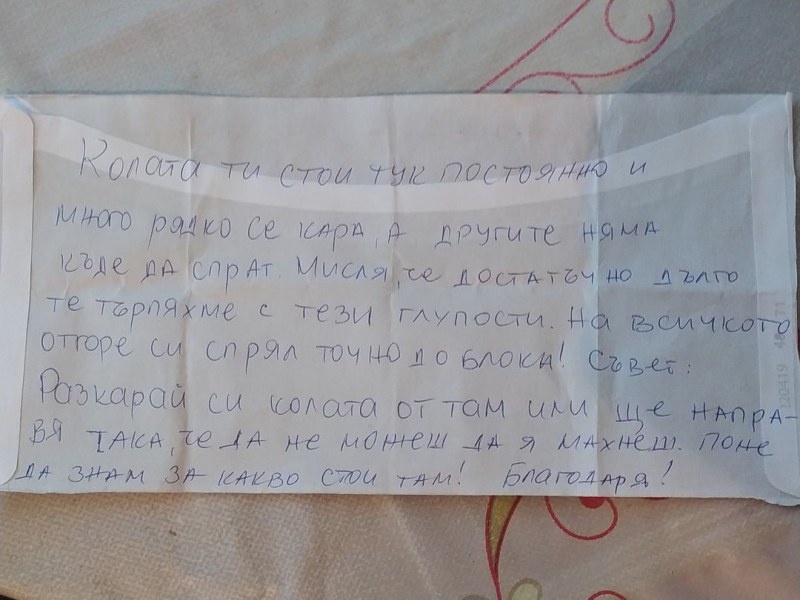 Колата ти стои тук постоянно и
много рядко се кара, а другите няма
къде да спрат. Мисля, че достатъчно дълго
те търпяхме с тези глупости. На всичкото
отгоре си спрял точно до блока! Съвет:
Разкарай си колата от там или ще напра-
вя така, че да не можеш да я махнеш. Поне
да знам за какво стои там! Благодаря!